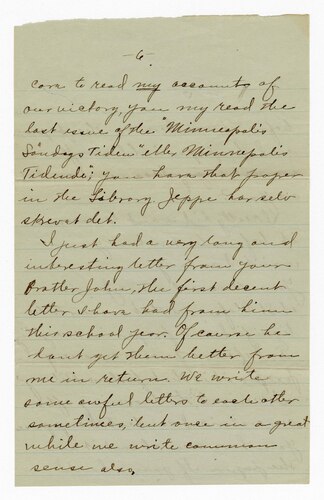 -6-
care to read my accounts of
our victory, you my read the
last issue of the "Minneapolis
Söndags Tiden" eller Minnepolis
Tidende"; you have that paper
in the Library Jeppe har selv
skrevat det.
I just had a very long and
interesting letter from your
Bratter John, the first decent
letter I have had from him
this school year. Of course he
dont get them better from
me in return. We write
some awful letters to each other
sometimes, but once in a great
while we write common
sense also.